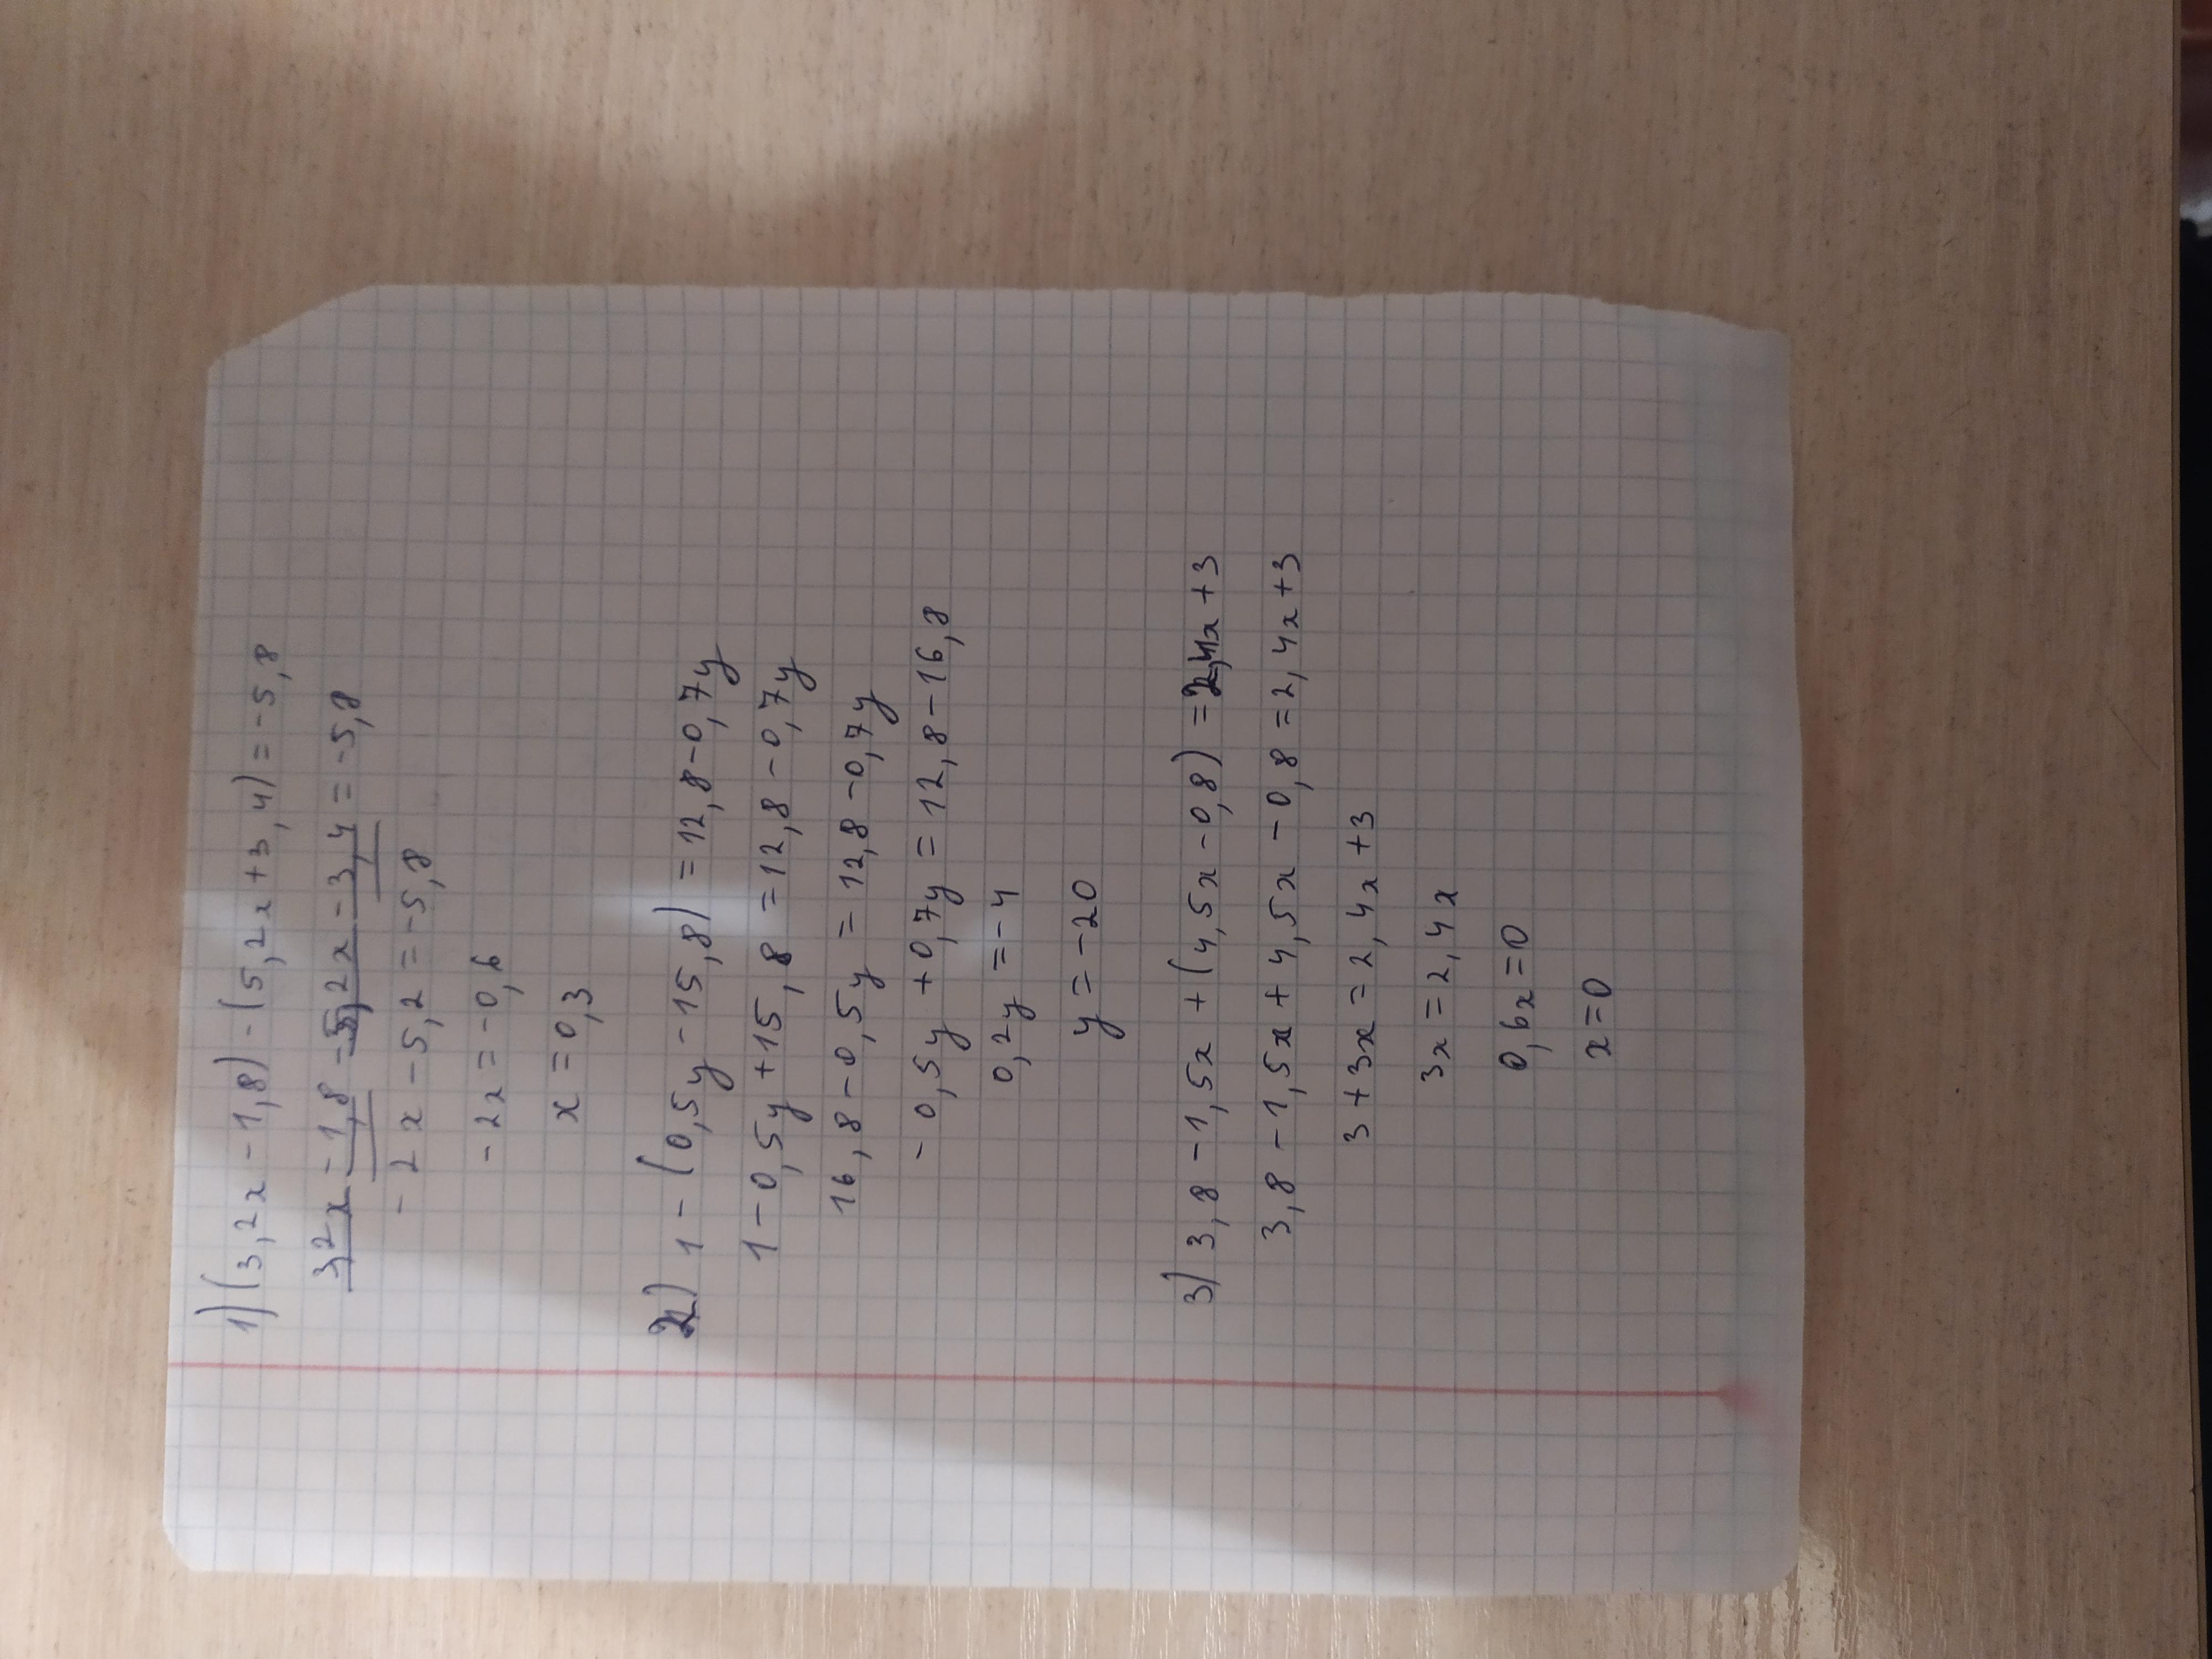 1) (3,2x - 1,8) - (5,2x + 3,4) = -5,8
3,2x - 1,8 - 5,2x - 3,4 = -5,8
- 2x - 5,2 = -5,8
- 2x = -0,6
x = 0,3
2) 1 - (0,5y - 15,8) = 12,8 - 0,7y
1 - 0,5y + 15,8 = 12,8 - 0,7y
16,8 - 0,5y = 12,8 - 0,7y
- 0,5y + 0,7y = 12,8 - 16,8
0,2y = -4
y = -20
3) 3,8 - 1,5x + (4,5x - 0,8) = 2,4x + 3
3,8 - 1,5x + 4,5x - 0,8 = 2,4x + 3
3 + 3x = 2,4x + 3
3x = 2,4x
0,6x = 0
x = 0